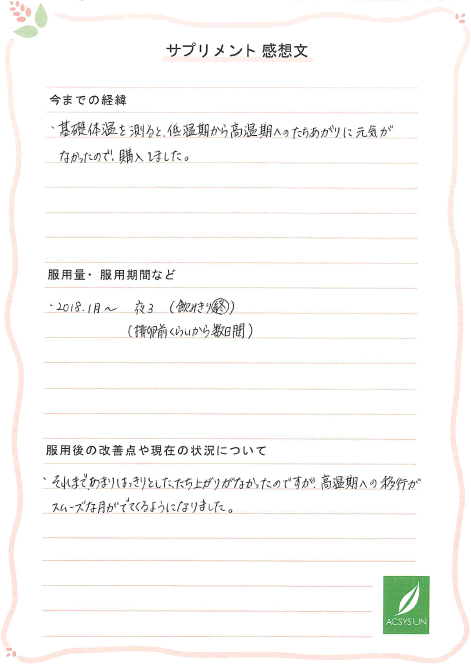 サプリメント 感想文
今までの経緯
・基礎体温を測ると、低温期から高温期へのたちあがりに元気が
なかったので、購入しました。
服用量・服用期間など
・2018.1月〜 夜3 (飲みきり終)
(排卵前くらいから数日間)
服用後の改善点や現在の状況について
・それまで、あまりはっきりとした、たち上がりがなかったのですが、高温期への移行が
スムーズな月がでてくるようになりました。
ACSYSUN